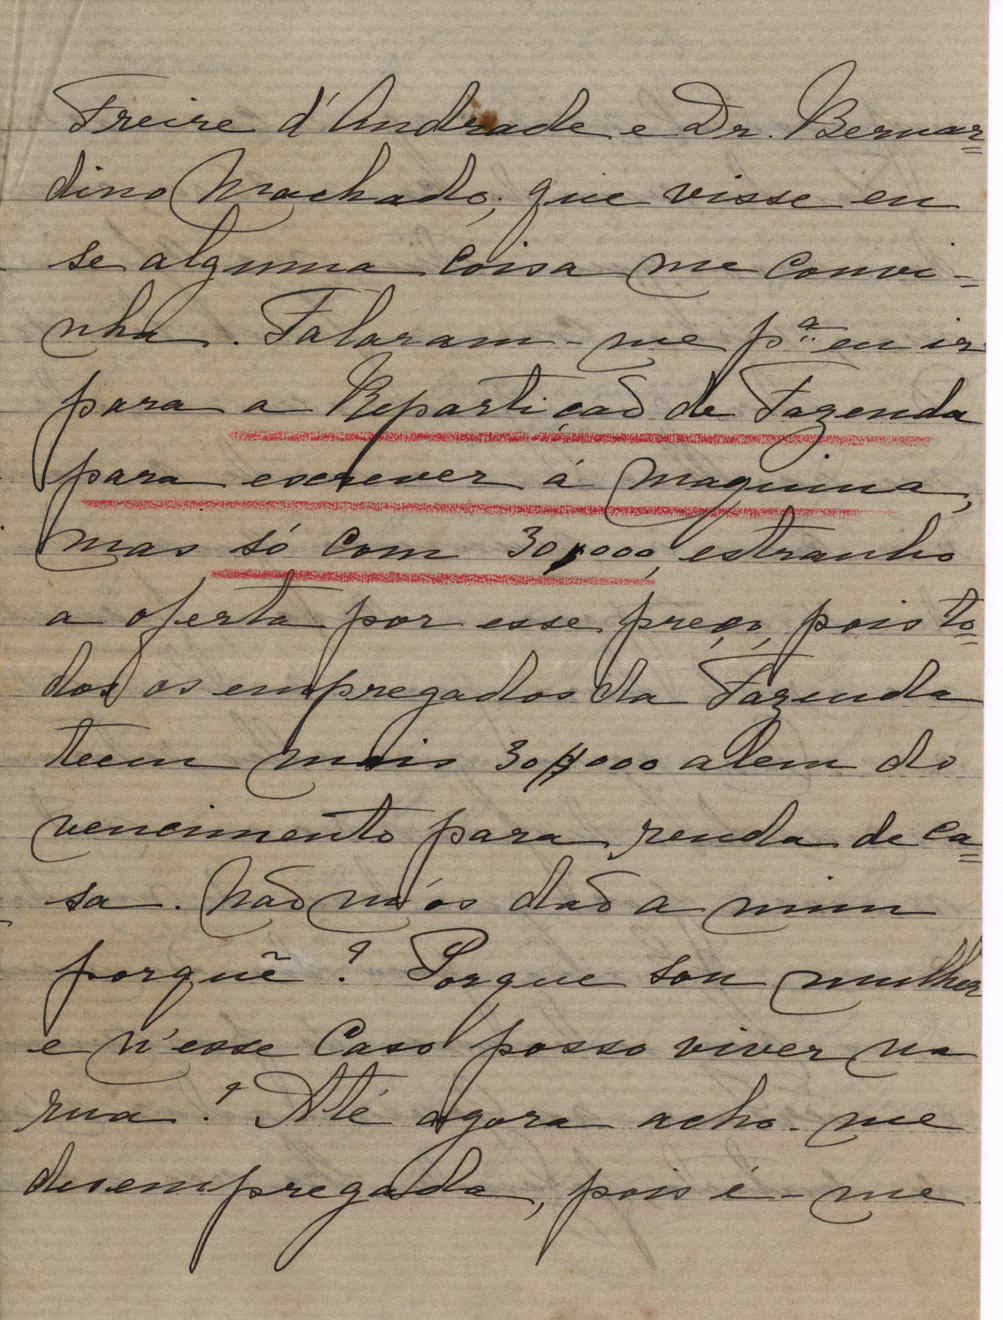 Freire d'Andrade e Dr. Bernar=
dino Machado, que visse eu
se alguma coisa me convi-
nha. Falaram-me pª eu ir
para a Repartição de Fazenda
para escrever á maquina,
mas só com 30,000, estranho
a oferta por esse preço, pois to=
dos os empregados da Fazenda
teem mais 30$000 alem do
vencimento para renda de ca=
sa. Não m'os dão a mim
porquê? Porque sou mulher
e n'esse caso posso viver na
rua? Até agora acho-me
desempregada, pois é-me